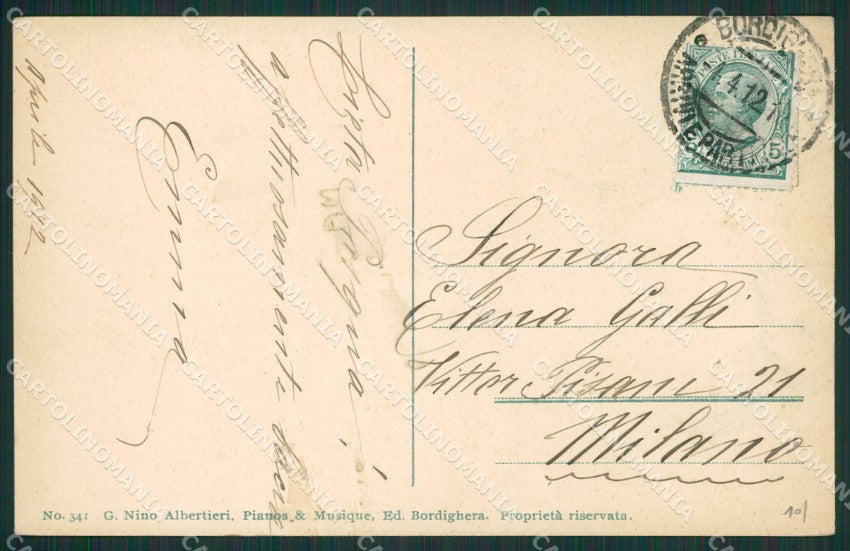 Aprile 1912
Buona Pasqua!
affettuosamente
Emma
Signora
Elena Galli
Vittor Pisani 21
Milano
BORDIGHERA
4.12
POSTE
5
No. 341 G. Nino Albertieri, Pianos & Musique, Ed. Bordighera. Proprietà riservata.
10/
CARTOLINOMANIA